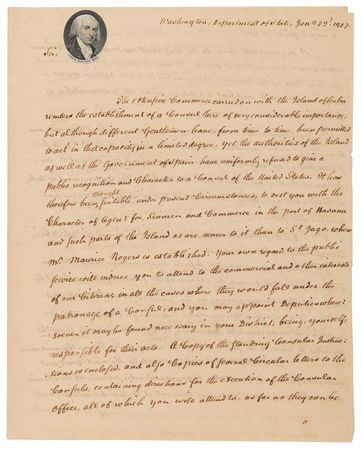 Washington, Department of State, Jany 22d. 1807.
Sir,
The extensive Commerce carried on with the Island of Cuba
renders the establishment of a Consul there of very considerable importance,
but although different Gentlemen have, from time to time, been permitted
to act in that capacity in a limited degree, yet the authorities of the Island
as well as the Government of Spain have uniformly refused to give a
public recognition and Character to a Consul of the United States. It has
thought
therefore been suitable, under present Circumstances, to vest you with the
Character of Agent for Seamen and Commerce in the port of Havana
and such parts of the Island as are nearer to it than to St. Jago, where
Mr. Maurice Rogers is established. Your own regard to the public
service will induce you to attend to the commercial and other interests
of our Citizens in all the cases where they would fall under the
patronage of a Consul, and you may appoint Deputies where-
soever it may be found necessary in your District, being, yourself,
responsible for their acts. A Copy of the standing Consular Instruc-
tions is enclosed, and also Copies of several Circular letters to the
Consuls, containing directions for the execution of the Consular
Office, all of which you will attend to, as far as they can be